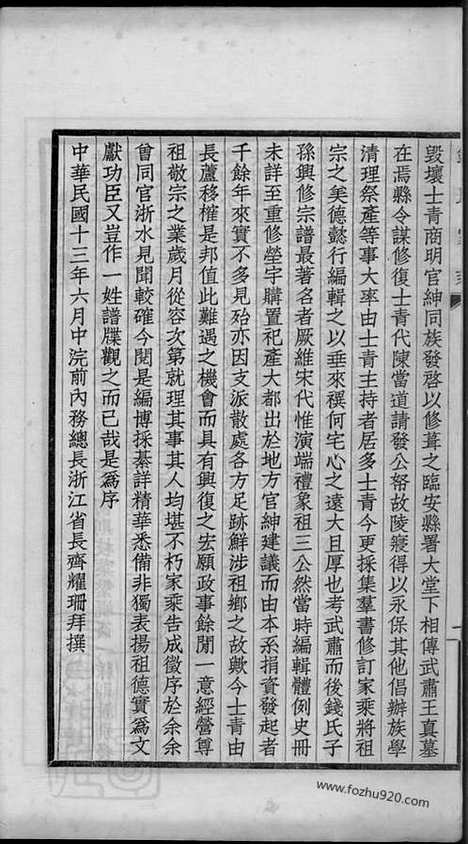 毀壞士青商明官紳同族發啓以修葺之臨安縣署大堂下相傳武肅王真墓
在焉縣令謀修復士青代陳當道請發公帑故陵寢得以永保其他倡辦族學
清理祭產等事大率由士青主持者居多士青今更採集羣書修訂家乘將祖
宗之美德懿行編輯之以垂來禩何宅心之遠大且厚也考武肅而後錢氏子
孫興修宗譜最著名者厥維宋代惟演端禮象祖三公然當時編輯體例史冊
未詳至重修塋宇購置祀產大都出於地方官紳建議而由本系捐資發起者
千餘年來實不多見殆亦因支派散處各方足跡鮮涉祖鄉之故歟今士青由
長蘆移榷是邦值此難遇之機會而具有興復之宏願政事餘閒一意經營尊
祖敬宗之業歲月從容次第就理其事其人均堪不朽家乘告成徵序於余余
曾同官浙水見聞較確今閱是編博採綦詳精華悉備非獨表揚祖德實爲文
獻功臣又豈作一姓譜牒觀之而已哉是爲序
中華民國十三年六月中浣前內務總長浙江省長齊耀珊拜撰
www.fozhu920.com